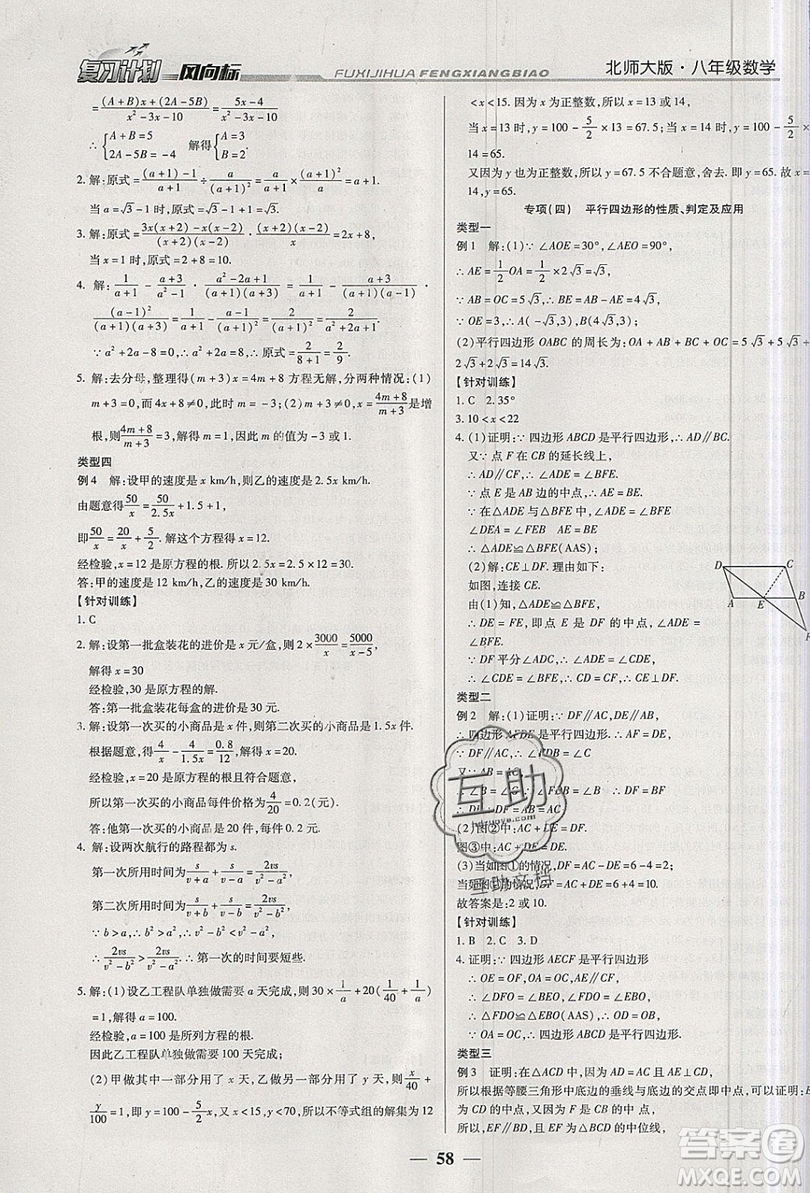 复习计划 风向标
FUXIJIHUA FENGXIANGBIAO
北师大版·八年级数学
=\frac{(A+B)x+(2A-5B)}{x²-3x-10}=\frac{5x-4}{x²-3x-10}
∴{A+B=5 2A-5B=-4 解得{A=3 B=2
2. 解:原式=\frac{(a+1)-1}{a+1}÷\frac{a}{(a+1)²}=\frac{a}{a+1}·\frac{(a+1)²}{a}=a+1.
当 a=√3-1 时,原式=√3-1+1=√3.
3. 解:原式=\frac{3x(x+2)-x(x-2)}{(x-2)(x+2)}·\frac{(x+2)(x-2)}{x}=2x+8.
当 x=1 时,原式=2+8=10.
4. 解:\frac{1}{a+1}-\frac{a+3}{a²-1}·\frac{a²-2a+1}{(a+1)(a+3)}=\frac{1}{a+1}-\frac{a+3}{(a+1)(a-1)}·
\frac{(a-1)²}{(a+1)(a+3)}=\frac{1}{a+1}-\frac{a-1}{(a+1)²}=\frac{2}{(a+1)²}.
∵a²+2a-8=0,∴a²+2a=8,∴原式=\frac{2}{8+1}=\frac{2}{9}.
5. 解:去分母,整理得(m+3)x=4m+8 方程无解,分两种情况:(1)
m+3=0,而 4x+8≠0,此时 m=-3;(2)m+3≠0,x=\frac{4m+8}{m+3}是增
根,则\frac{4m+8}{m+3}=3,解得 m=1.因此 m 的值为-3 或 1.
类型四
例4 解:设甲的速度是 x km/h,则乙的速度是 2.5x km/h.
由题意得\frac{50}{x}=\frac{50}{2.5x}+1.5+1,
即\frac{50}{x}=\frac{20}{x}+\frac{5}{2}.解这个方程得 x=12.
经检验,x=12 是原方程的根.所以 2.5x=2.5×12=30.
答:甲的速度是 12 km/h,乙的速度是 30 km/h.
【针对训练】
1. C
2. 解:设第一批盒装花的进价是 x 元/盒,则 2×\frac{3000}{x}=\frac{5000}{x-5},
解得 x=30
经检验,30 是原方程的解.
答:第一批盒装花每盒的进价是 30 元.
3. 解:设第一次买的小商品是 x 件,则第二次买的小商品是 1.5x 件.
根据题意,得\frac{4}{x}-\frac{4}{1.5x}=\frac{0.8}{12},解得 x=20.
经检验,x=20 是原方程的根且符合题意.
所以第一次买的小商品每件价格为\frac{4}{20}=0.2(元).
答:他第一次买的小商品是 20 件,每件 0.2 元.
4. 解:设两次航行的路程都为 s.
第一次所用时间为\frac{s}{v}+\frac{s}{v}=\frac{2vs}{v²}
第二次所用时间为\frac{s}{v+b}+\frac{s}{v-b}=\frac{2vs}{v²-b²}
∵b>a,∴b²>a²,∴v²-b²<v²-a²
∴\frac{2vs}{v²-b²}>\frac{2vs}{v²-a²}
∴第一次的时间要短些.
5. 解:(1)设乙工程队单独做需要 a 天完成,则 30×\frac{1}{a}+20(\frac{1}{40}+\frac{1}{a})
=1,解得 a=100.
经检验,a=100 是所列方程的根.
因此乙工程队单独做需要 100 天完成;
(2)甲做其中一部分用了 x 天,乙做另一部分用了 y 天,则\frac{x}{40}+
\frac{y}{100}=1,即 y=100-\frac{5}{2}x,又 x<15,y<70,所以不等式组的解集为 12
<x<15. 因为 x 为正整数,所以 x=13 或 14,
当 x=13 时,y=100-\frac{5}{2}×13=67.5;当 x=14 时,y=100-\frac{5}{2}×
14=65.
又因为 y 也为正整数,所以 y=67.5 不合题意,舍去.即 x=
14,y=65.
专项(四) 平行四边形的性质、判定及应用
类型一
例1 解:(1)∵∠AOE=30°,∠AEO=90°,
∴AE=\frac{1}{2}OA=\frac{1}{2}×2√3=√3.
∵AB=OC=5√3,∴EB=4√3.
∵OE=3,∴A(-√3,3),B(4√3,3);
(2)平行四边形 OABC 的周长为:OA+AB+BC+OC=5√3+5√3+
2√3+2√3=14√3.
【针对训练】
1. C 2. 35°
3. 10<x<22
4. (1)证明:∵四边形 ABCD 是平行四边形,∴AD∥BC.
又∵点 F 在 CB 的延长线上,
∴AD∥CF,∴∠ADE=∠BFE.
∵点 E 是 AB 边的中点,∴AE=BE.
∵在△ADE 与△BFE 中,∠ADE=∠BFE,
∠DEA=∠FEB AE=BE,
∴△ADE≌△BFE(AAS);
(2)解:CE⊥DF.理由如下:
如图,连接 CE.
由(1)知,△ADE≌△BFE,
∴DE=FE,即点 E 是 DF 的中点,
∵DF 平分∠ADC,∴∠ADE=∠CDE,
∴∠CDE=∠BFE,∴CD=CF,∴CE⊥DF.
D C A E B
类型二
例2 解:(1)证明:∵DF∥AC,DE∥AB,
∴四边形 AFDE 是平行四边形.∴AF=DE,
∵DF∥AC,∴∠FDB=∠C
又∵AB=AC,∴∠B=∠C,
∴∠FDB=∠B,∴DF=BF
∴DE+DF=AB=AC;
(2)图②中:AC+DE=DF.
图③中:AC+DF=DE.
(3)当如图①的情况,DF=AC-DE=6-4=2;
当如图②的情况,DF=AC+DE=6+4=10.
故答案是:2 或 10.
【针对训练】
1. B 2. C 3. D
4. 证明:∵四边形 AECF 是平行四边形
∴OE=OF,OA=OC,AE∥CF,
∴∠DFO=∠BEO,∠FDO=∠EBO,
∴△FDO≌△EBO,∴OD=OB,
∵OA=OC,∴四边形 ABCD 是平行四边形
类型三
例3 证明:∵在△ACD 中,AD=AC,AE⊥CD,
所以根据等腰三角形中底边的垂线与底边的交点即中点,可以得出
为 CD 的中点,又因为 F 是 CB 的中点,
所以,EF∥BD,且 EF 为△BCD 的中位线,
互助
互助文档
58
答案圈
MXQE.COM